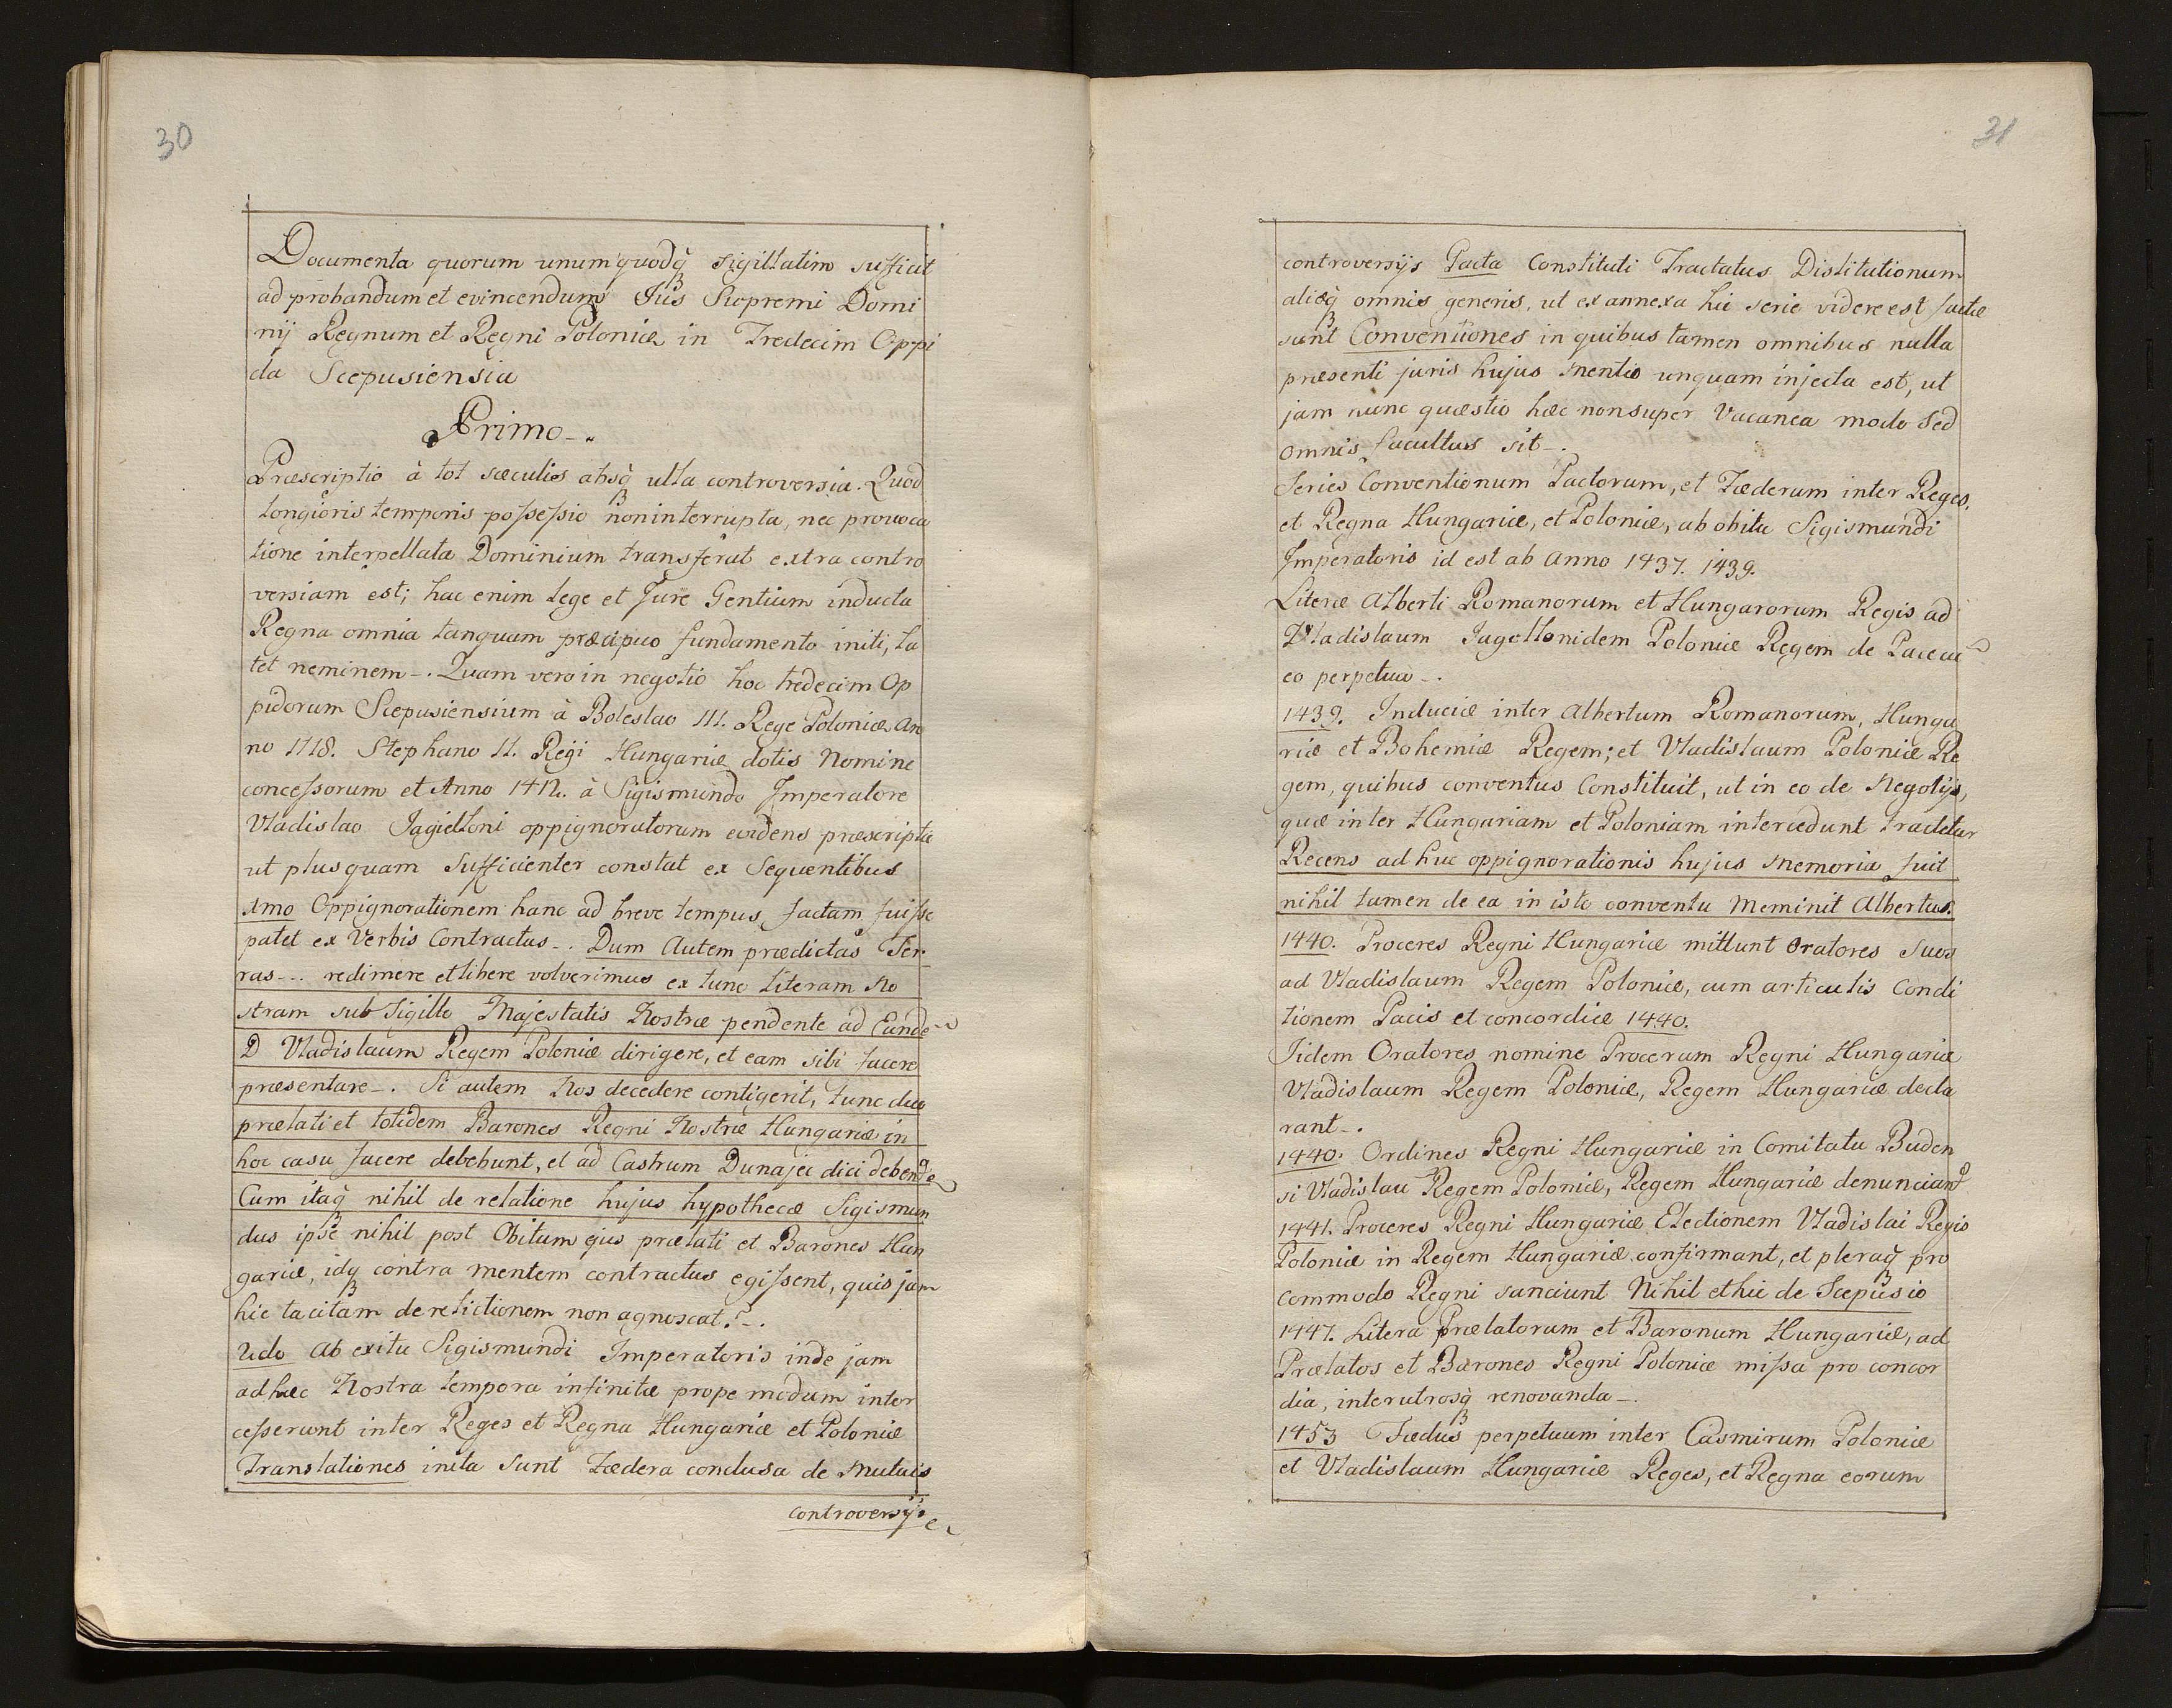 30
Documenta quorum unumquodq sigillatim sufficit
ad probandum et evincendum Jus Supremi Domi
nij Regnum et Regni Poloniæ in Tredecim Oppi
da Scepusiensia
Primo
Præscriptio à tot sæculis absq ulla controversia. Quod
longioris temporis possessio non interrupta, nec provoca
tione interpellata Dominium transferat extra contro
versiam est; hac enim lege et Jure Gentium inducta
Regna omnia tanquam præcipuo fundamento initi, la
tet neminem. Quam vero in negotio hoc tredecim Op
pidorum Scepusiensium à Boleslao III. Rege Poloniæ An
no 1118. Stephano II. Regi Hungariæ dotis Nomine
concessorum et Anno 1412. à Sigismundo Imperatore
Vladislao Jagielloni oppignoratorum evidens præscriptio
ut plusquam Sufficienter constat ex Sequentibus
1mo Oppignorationem hanc ad breve tempus factam fuisse
patet ex Verbis Contractus. Dum Autem prædictas Ter
ras... redimere et libere volverimus ex tunc literam No
stram sub Sigillo Majestatis Nostræ pendente ad Eunde
D Vladislaum Regem Poloniæ dirigere, et eam sibi facere
præsentare. Si autem Nos decedere contigerit, tunc duo
prælati et totidem Barones Regni Nostræ Hungariæ in
hoc casu facere debebunt, et ad Castrum Dunajec dici deben
Cum itaq nihil de relatione hujus hypothecæ Sigismun
dus ipse nihil post Obitum ejus prælati et Barones Hun
gariæ, idq contra mentem contractus egissent, quis jam
hic tacitam derelictionem non agnoscat?
2do Ab exitu Sigismundi Imperatoris inde jam
ad hæc Nostra tempora infinitæ prope modum inter
cesserunt inter Reges et Regna Hungariæ et Poloniæ
Translationes inita sunt Fædera conclusa de Mutuis
controversijs
31
controversijs Pacta Constituti Tractatus Distitutionum
aliæq omnis generis, ut ex annexa hic serie videre est factæ
sunt Conventiones in quibus tamen omnibus nulla
præsenti juris hujus mentio unquam injecta est, ut
jam nunc quæstio hæc non super Vacanea modo Sed
omnis facultus sit.
Series Conventionum Pactorum, et Fæderum inter Reges,
et Regna Hungariæ, et Poloniæ, ab obitu Sigismundi
Imperatoris id est ab Anno 1437. 1439.
Literæ Alberti Romanorum et Hungarorum Regis ad
Vladislaum Jagellonidem Poloniæ Regem de Pace cu
eo perpetuo.
1439. Induciæ inter Albertum Romanorum, Hunga
riæ et Bohemiæ Regem; et Vladislaum Poloniæ Re
gem, quibus conventus Constituit, ut in eo de Negotijs,
quæ inter Hungariam et Poloniam intercedunt tractetur
Recens ad huc oppignorationis hujus memoria fuit
nihil tamen de ea in isto conventu Meminit Albertus.
1440. Proceres Regni Hungariæ mittunt Oratores Suos
ad Vladislaum Regem Poloniæ, cum articulis Condi
tionem Pacis et concordiæ 1440.
Iidem Oratores nomine Procerum Regni Hungariæ
Vladislaum Regem Poloniæ, Regem Hungariæ decla
rant.
1440. Ordines Regni Hungariæ in Comitatu Buden
si Vladislau Regem Poloniæ, Regem Hungariæ denunciant
1441. Proceres Regni Hungariæ Electionem Vladislai Regis
Poloniæ in Regem Hungariæ confirmant, et pleraq pro
commodo Regni sanciunt Nihil et hic de Scepusio
1447. Litera Prælatorum et Baronum Hungariæ, ad
Prælatos et Barones Regni Poloniæ missa pro concor
dia, inter utrosq renovanda.
1453 Fædus perpetuum inter Casmirum Poloniæ
et Vladislaum Hungariæ Reges, et Regna eorum